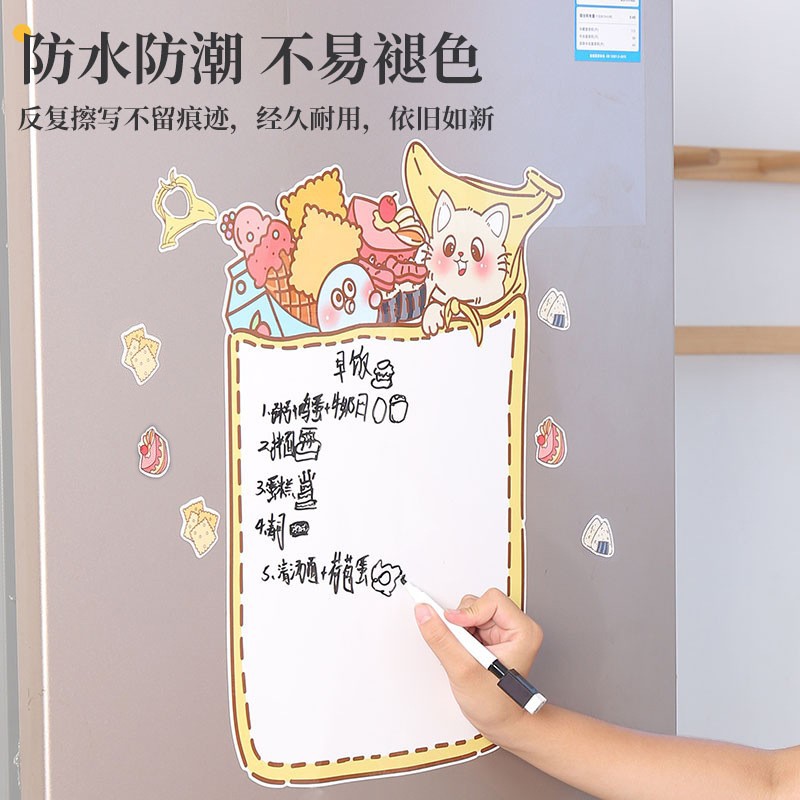 防水防潮 不易褪色
反复擦写不留痕迹，经久耐用，依旧如新
早饭
1.粥+鸡蛋+牛奶
2.拌面
3.蛋糕
4.
5.清汤面+荷包蛋